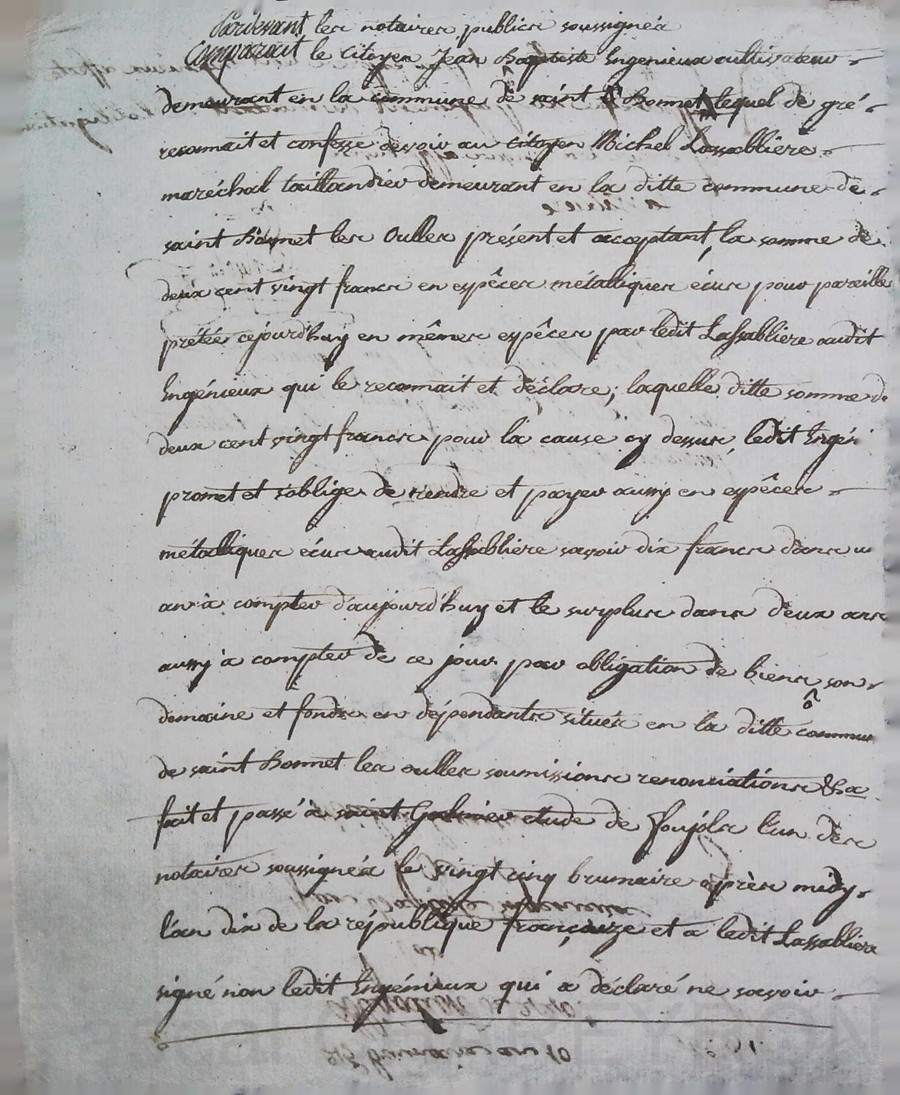 Pardevant les notaires publics soussignés
Comparait le citoyen Jean Baptiste Ingenieux cultivateur
demeurant en la commune de saint Bonnet lequel de gré
reconnait et confesse devoir au citoyen Michel Lassabliere
maréchal taillandier demeurant en la ditte commune de
saint Bonnet les Oulles présent et acceptant, la somme de
deux cent vingt francs en espêces métalliques écus pour pareille
prêtée cejourd'huy en mêmes espêces par ledit Lassabliere audit
Ingénieux qui le reconnait et déclare; laquelle ditte somme de
deux cent vingt francs pour la cause cy dessus, ledit Ingéni
promet et s'oblige de rendre et payer aussy en espêces
métalliques écus audit Lassabliere savoir dix francs dans u
an à compter d'aujourd'huy et le surplus dans deux ans
aussy à compter de ce jour par obligation de biens son
domaine et fonds en dépendants situés en la ditte commun
de saint Bonnet les oulles soumissions renonciations &a
fait et passé à saint Galmier etude de foujols l'un des
notaires soussignés le vingt cinq brumaire après midy
l'an dix de la république françaize et a ledit Lassabliere
signé non ledit Ingénieux qui a déclaré ne savoir
25 brumaire an 10